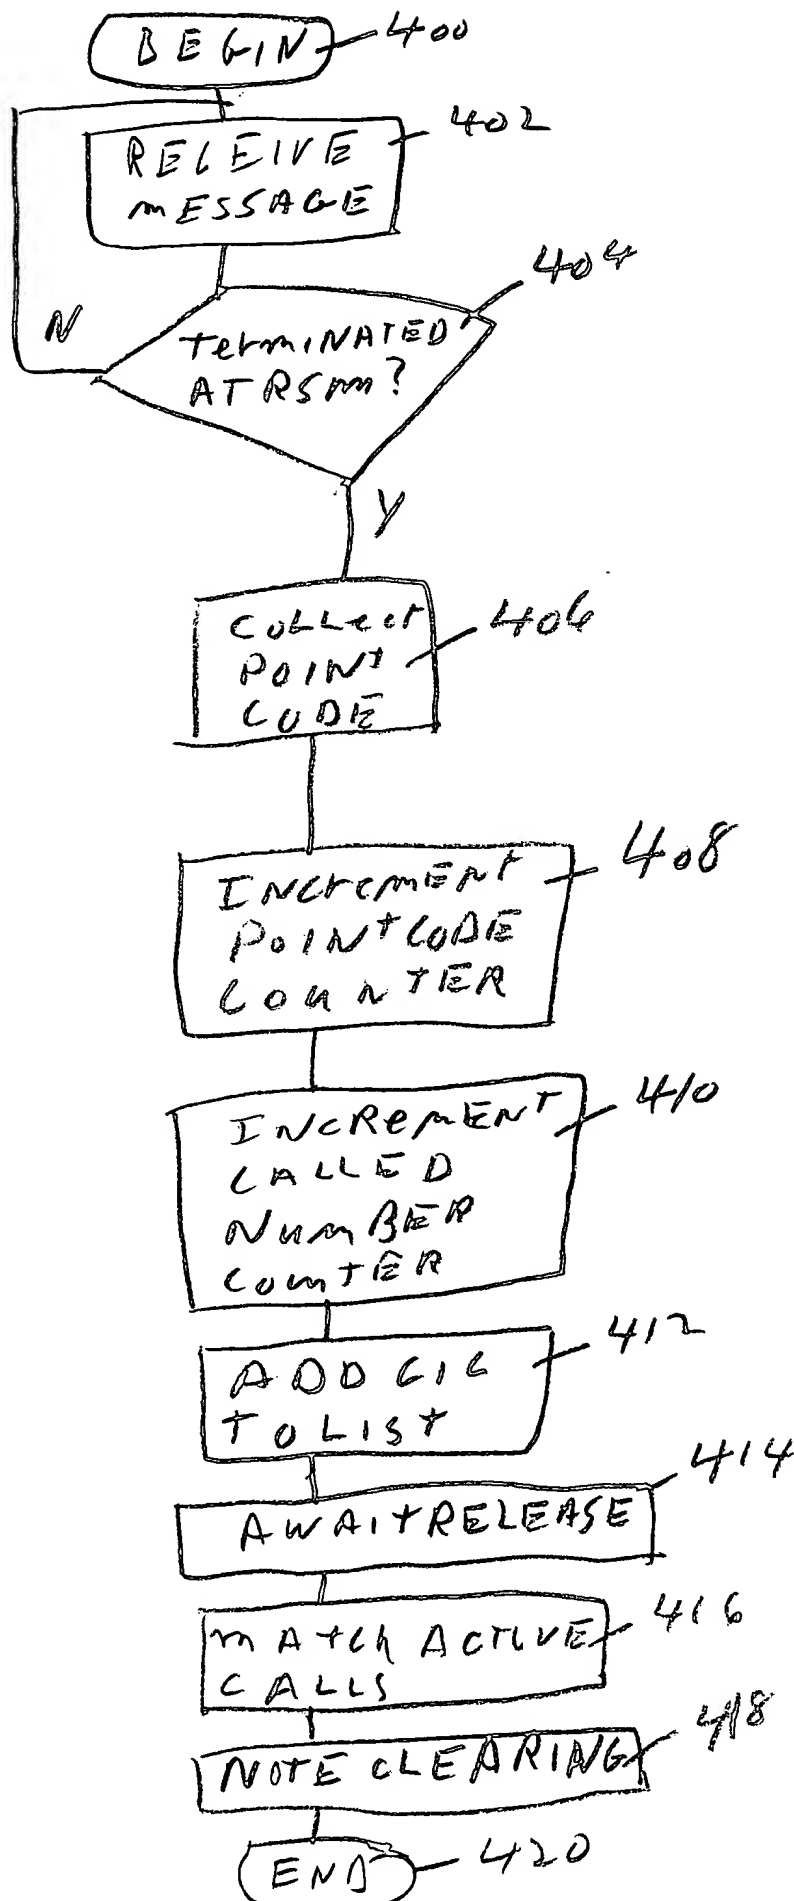 BEGIN 400
402
RECEIVE
mESSAGE
404
N
TermINATED
AT RSm?
Y
COLLect 406
POINT
CODE
INCremENT 408
POINT CODE
COUNTER
INCRemENT 410
CALLED
NumBER
COUNTER
ADD CIC 412
TO LIST
414
AWAIT RELEASE
mATCh ACTIVE 416
CALLS
NOTE CLEARING 418
END 420